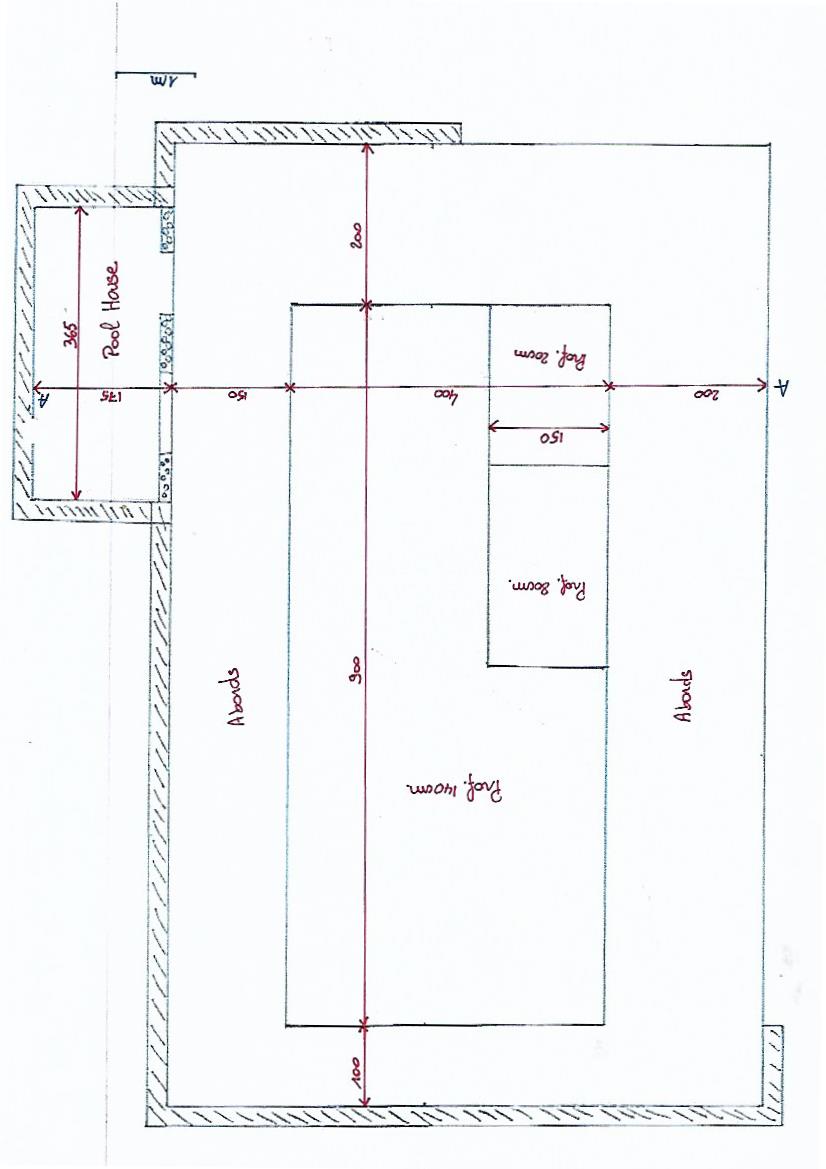 1m
200
Pool House
365
A
175
150
400
200
A
Prof. 20cm
150
Prof. 80cm.
900
Abords
Abords
Prof. 140cm.
100